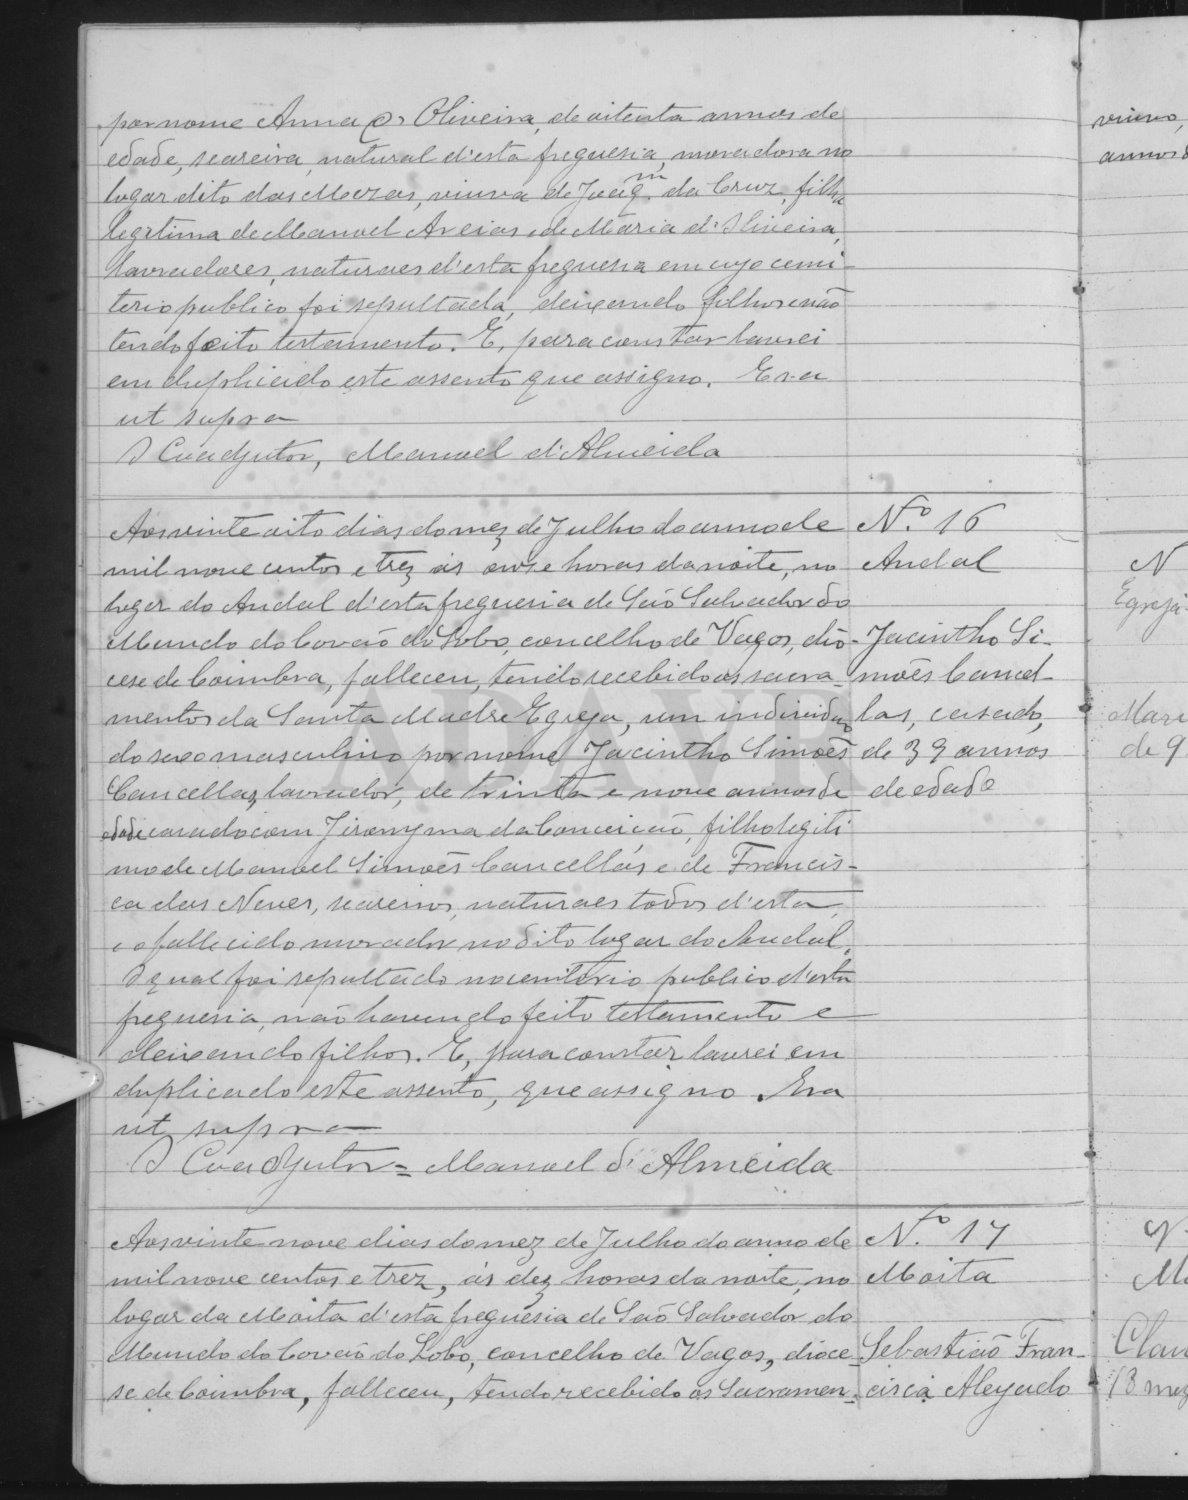 por nome Anna d'Oliveira, de oitenta annos de
edade, seareira, natural d'esta freguesia, moradora no
logar dito das Mezas, viuva de Joaq.m da Cruz, filha
legitima de Manoel Areias e de Maria d'Oliveira,
lavradores, naturaes d'esta freguesia em cujo cemi-
terio publico foi sepultada, deixando filhos e não
tendo feito testamento. E, para constar lavrei
em duplicado este assento que assigno. Era
ut supra
O Coadjutor, Manoel d'Almeida
Aos vinte oito dias do mez de Julho do anno de
mil nove centos e trez ás onze horas da noite, no
logar do Andal d'esta freguesia de São Salvador do
Mundo do Covão do Lobo, concelho de Vagos, dio-
cese de Coimbra, falleceu, tendo recebido os sacra-
mentos da Santa Madre Egreja, um individuo
do sexo masculino por nome Jacintho Simões
Cancellas, lavrador, de trinta e nove annos de
edade casado com Jironyma da Conceicão, filho legiti
mo de Manoel Simões Cancellas e de Francis-
ca das Neves, seareiros, naturaes todos d'esta,
e o fallecido morador no dito logar do Andal,
O qual foi sepultado no cemiterio publico d'esta
freguesia, não havendo feito testamento e
deixando filhos. E, para constar lavrei em
duplicado este assento, que assigno. Era
ut supra
O Coadjutor = Manoel d'Almeida
Aos vinte nove dias do mez de Julho do anno de
mil nove centos e trez, ás dez horas da noite, no
logar da Moita d'esta freguesia de São Salvador do
Mundo do Covão do Lobo, concelho de Vagos, dioce-
se de Coimbra, falleceu, tendo recebido os Sacramen-
N.º 16
Andal
Jacintho Si-
mões Cancel-
las, casado,
de 39 annos
de edade
N.º 17
Moita
Sebastião Fran-
cisco Aleijado
viuvo,
annos d
N
Egreja
Mari
de 9
N.
Mo
Clau
13 mez
ADAVR